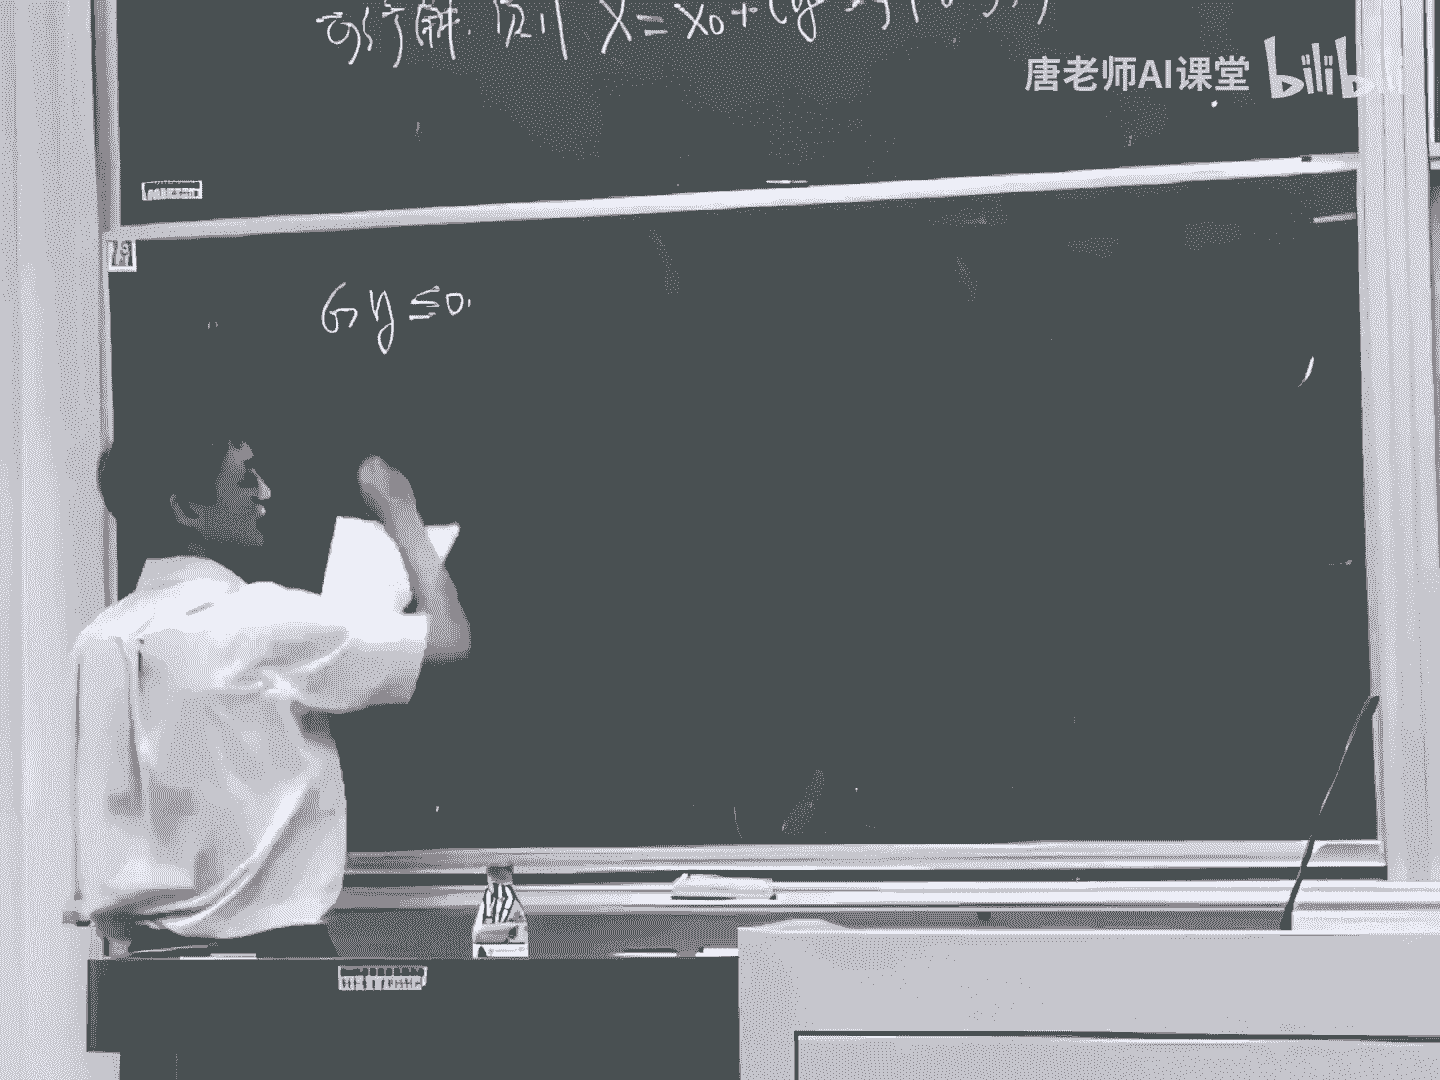 可行解. 则 X = X₀ +
唐老师AI课堂 bilibili
Gy ≤ 0.